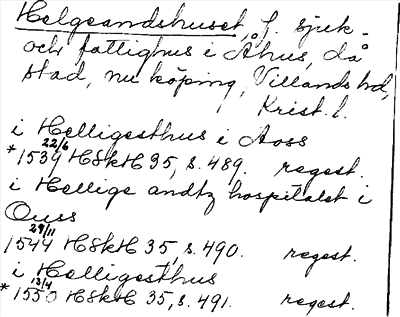 Helgeandshuset, f. sjuk-
och fattighus i Åhus, då
stad, nu köping, Villands hd,
Krist. l.
i Helligesthus i Aoss
*1539 22/6 HSkH 35, s. 489. regest.
i Hellige andtz hospitalet i
Ouss
1544 29/11 HSkH 35, s. 490. regest.
i Helligesthus
*1550 13/4 HSkH 35, s. 491. regest.